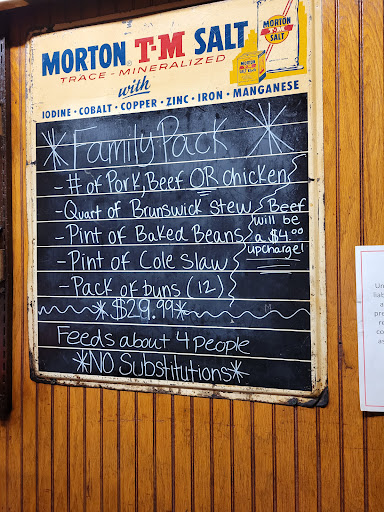 MORTON T-M SALT
TRACE-MINERALIZED
with
IODINE • COBALT • COPPER • ZINC • IRON • MANGANESE
MORTON
SALT
*Family Pack*
- # of Pork, Beef OR chicken
- Quart of Brunswick Stew
- Pint of Baked Beans
- Pint of Cole Slaw
- Pack of buns (12)
Beef
will be
a $4.00
upcharge!
*$29.99*
Feeds about 4 people
*NO Substitutions*